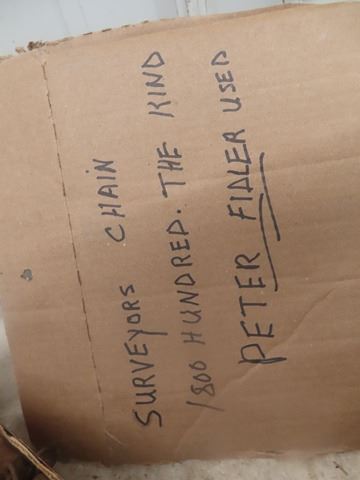 SURVEYORS CHAIN
1800 HUNDRED. THE KIND
PETER FIDLER USED